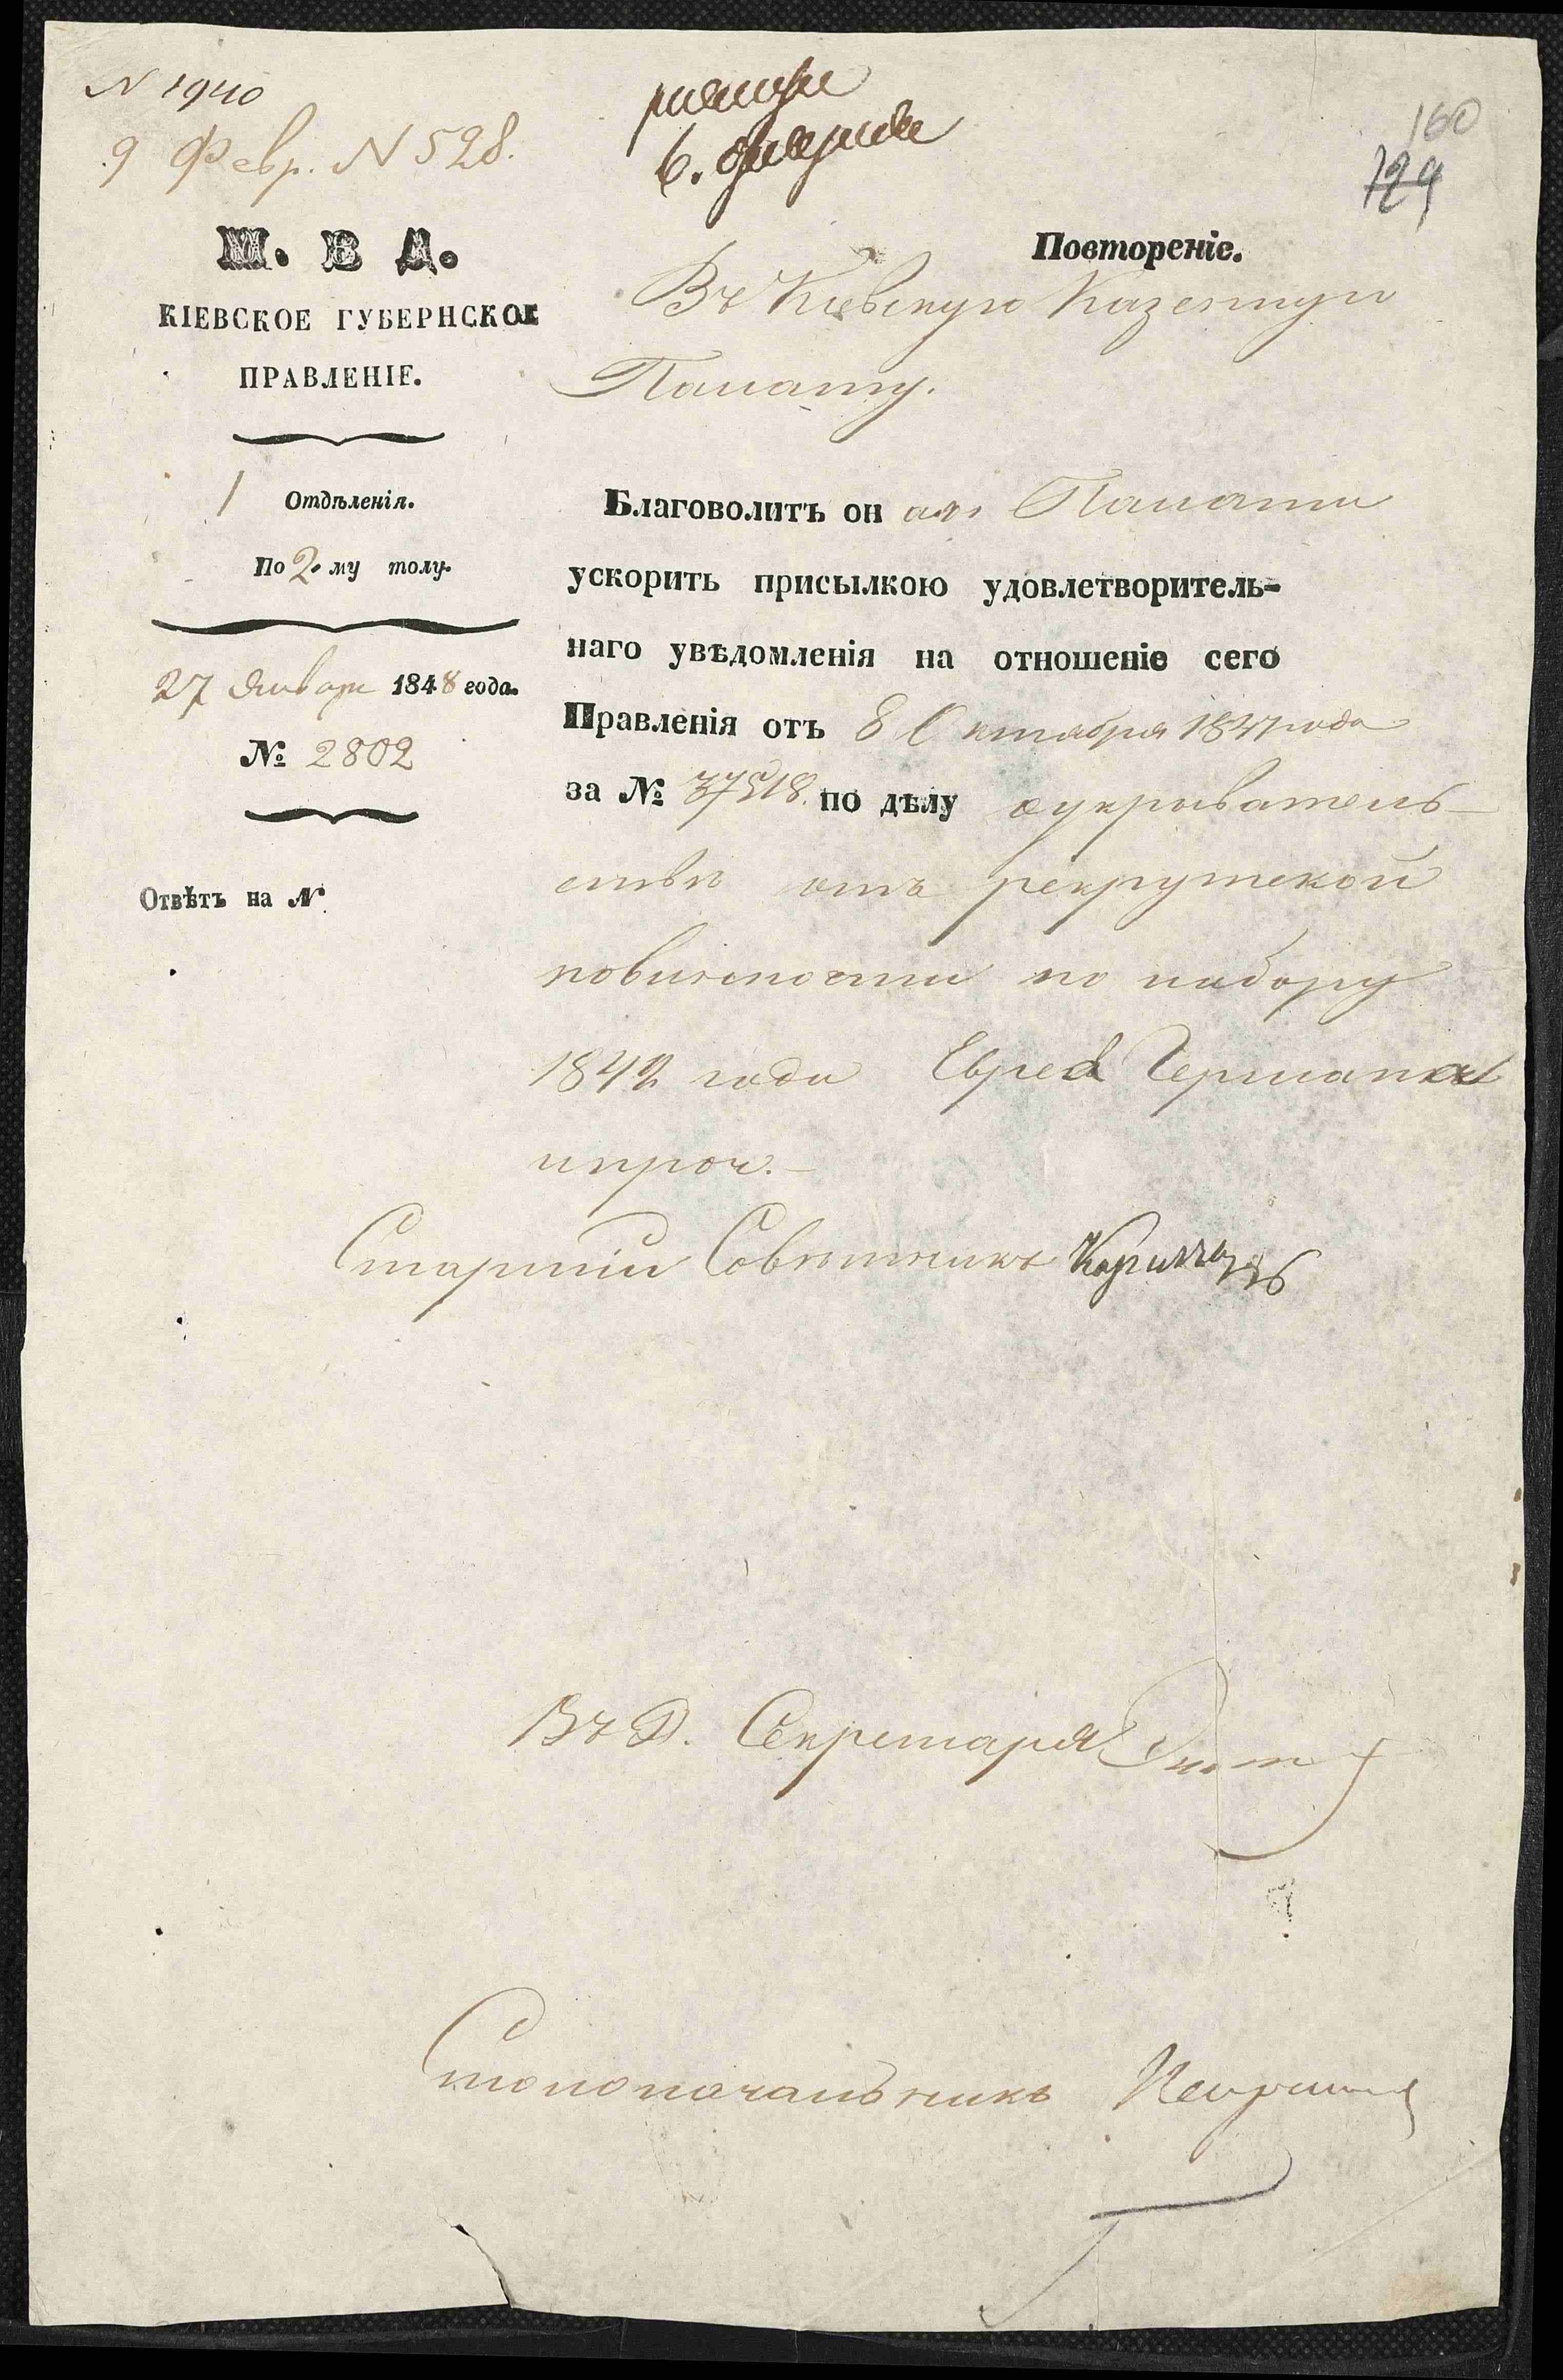 N 1940
9 Февр. N 528.
6. февраля
160
729
М. В Д.
КІЕВСКОЕ ГУБЕРНСКОЕ
ПРАВЛЕНІЕ.
1 Отдѣленія.
По 2. му толу.
27 Января 1848 года.
№ 2802
Отвѣтъ на №
Повтореніе.
Въ Кіевскую Казенную
Палату.
Благоволитъ он ая Палата
ускорить присылкою удовлетворитель-
наго увѣдомленія на отношеніе сего
Правленія отъ 8 Октября 1847 года
за № 37518. по дѣлу о укрыватель-
ствѣ отъ рекрутской
повинности по набору
1842 года Еврея Германа
и проч.
Старшій Совѣтникъ
Въ Д. Секретаря
Столоначальникъ